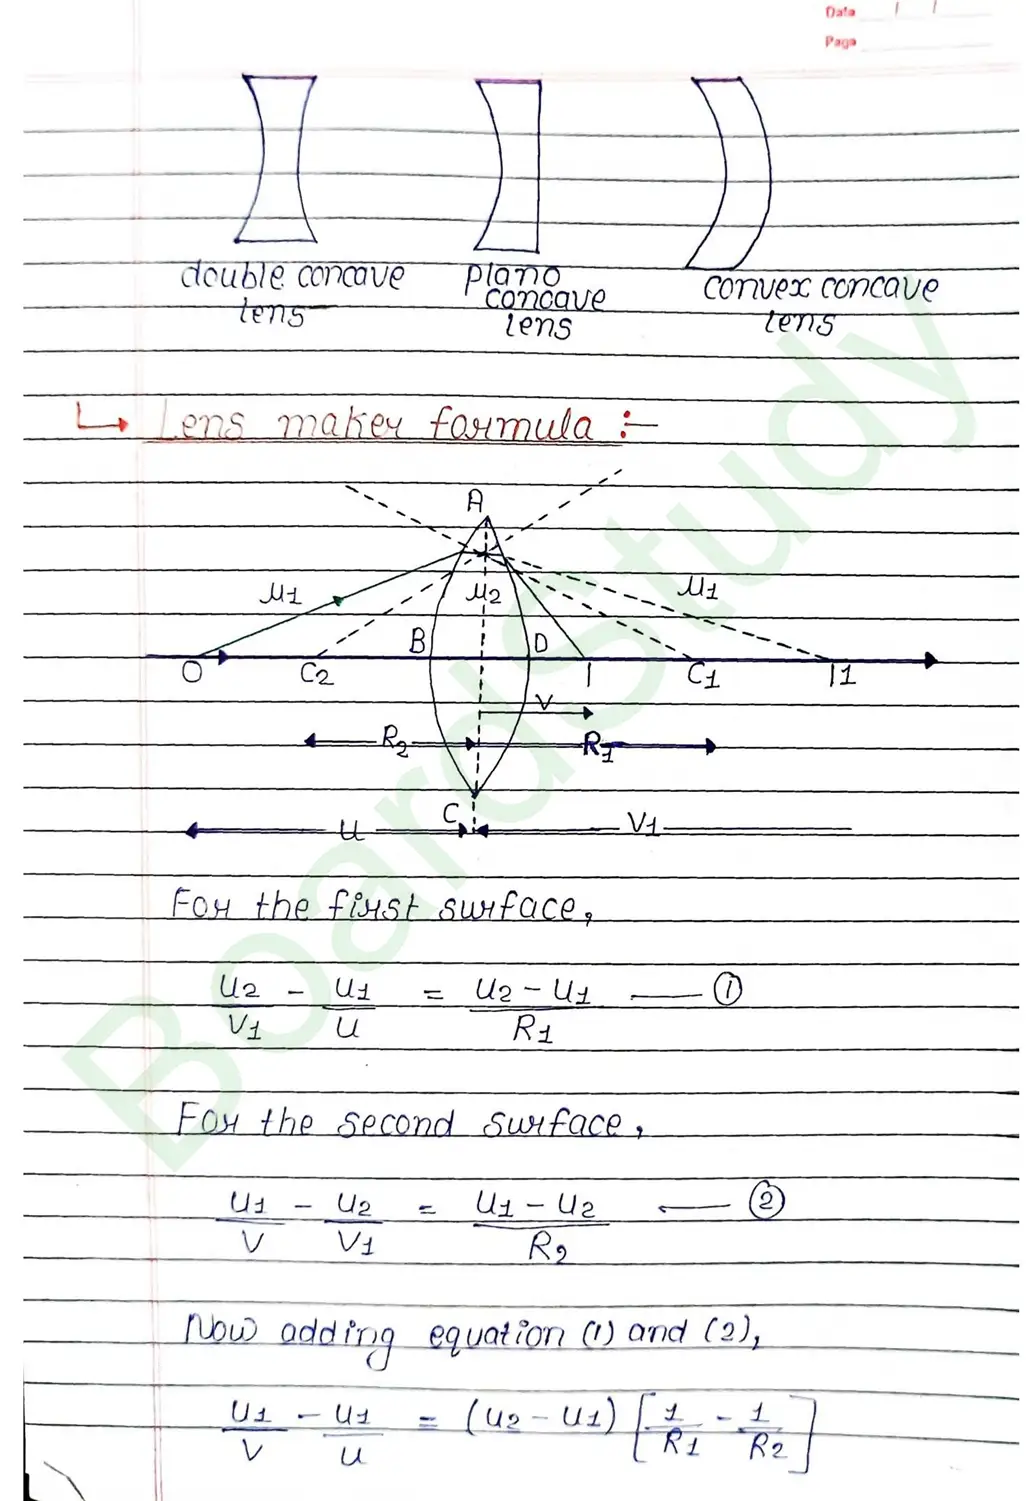 Data / /
Page
double concave lens
plano concave lens
convex concave lens
Lens maker formula :-
A
μ1 μ2 μ1
B D
O C2 I C1 I1
V
R2 R1
C
u V1
For the first surface,
u2/V1 - u1/u = u2 - u1/R1 — ①
For the second surface,
u1/V - u2/V1 = u1 - u2/R2 — ②
Now adding equation (1) and (2),
u1/V - u1/u = (u2 - u1) [1/R1 - 1/R2]
BoardStudy